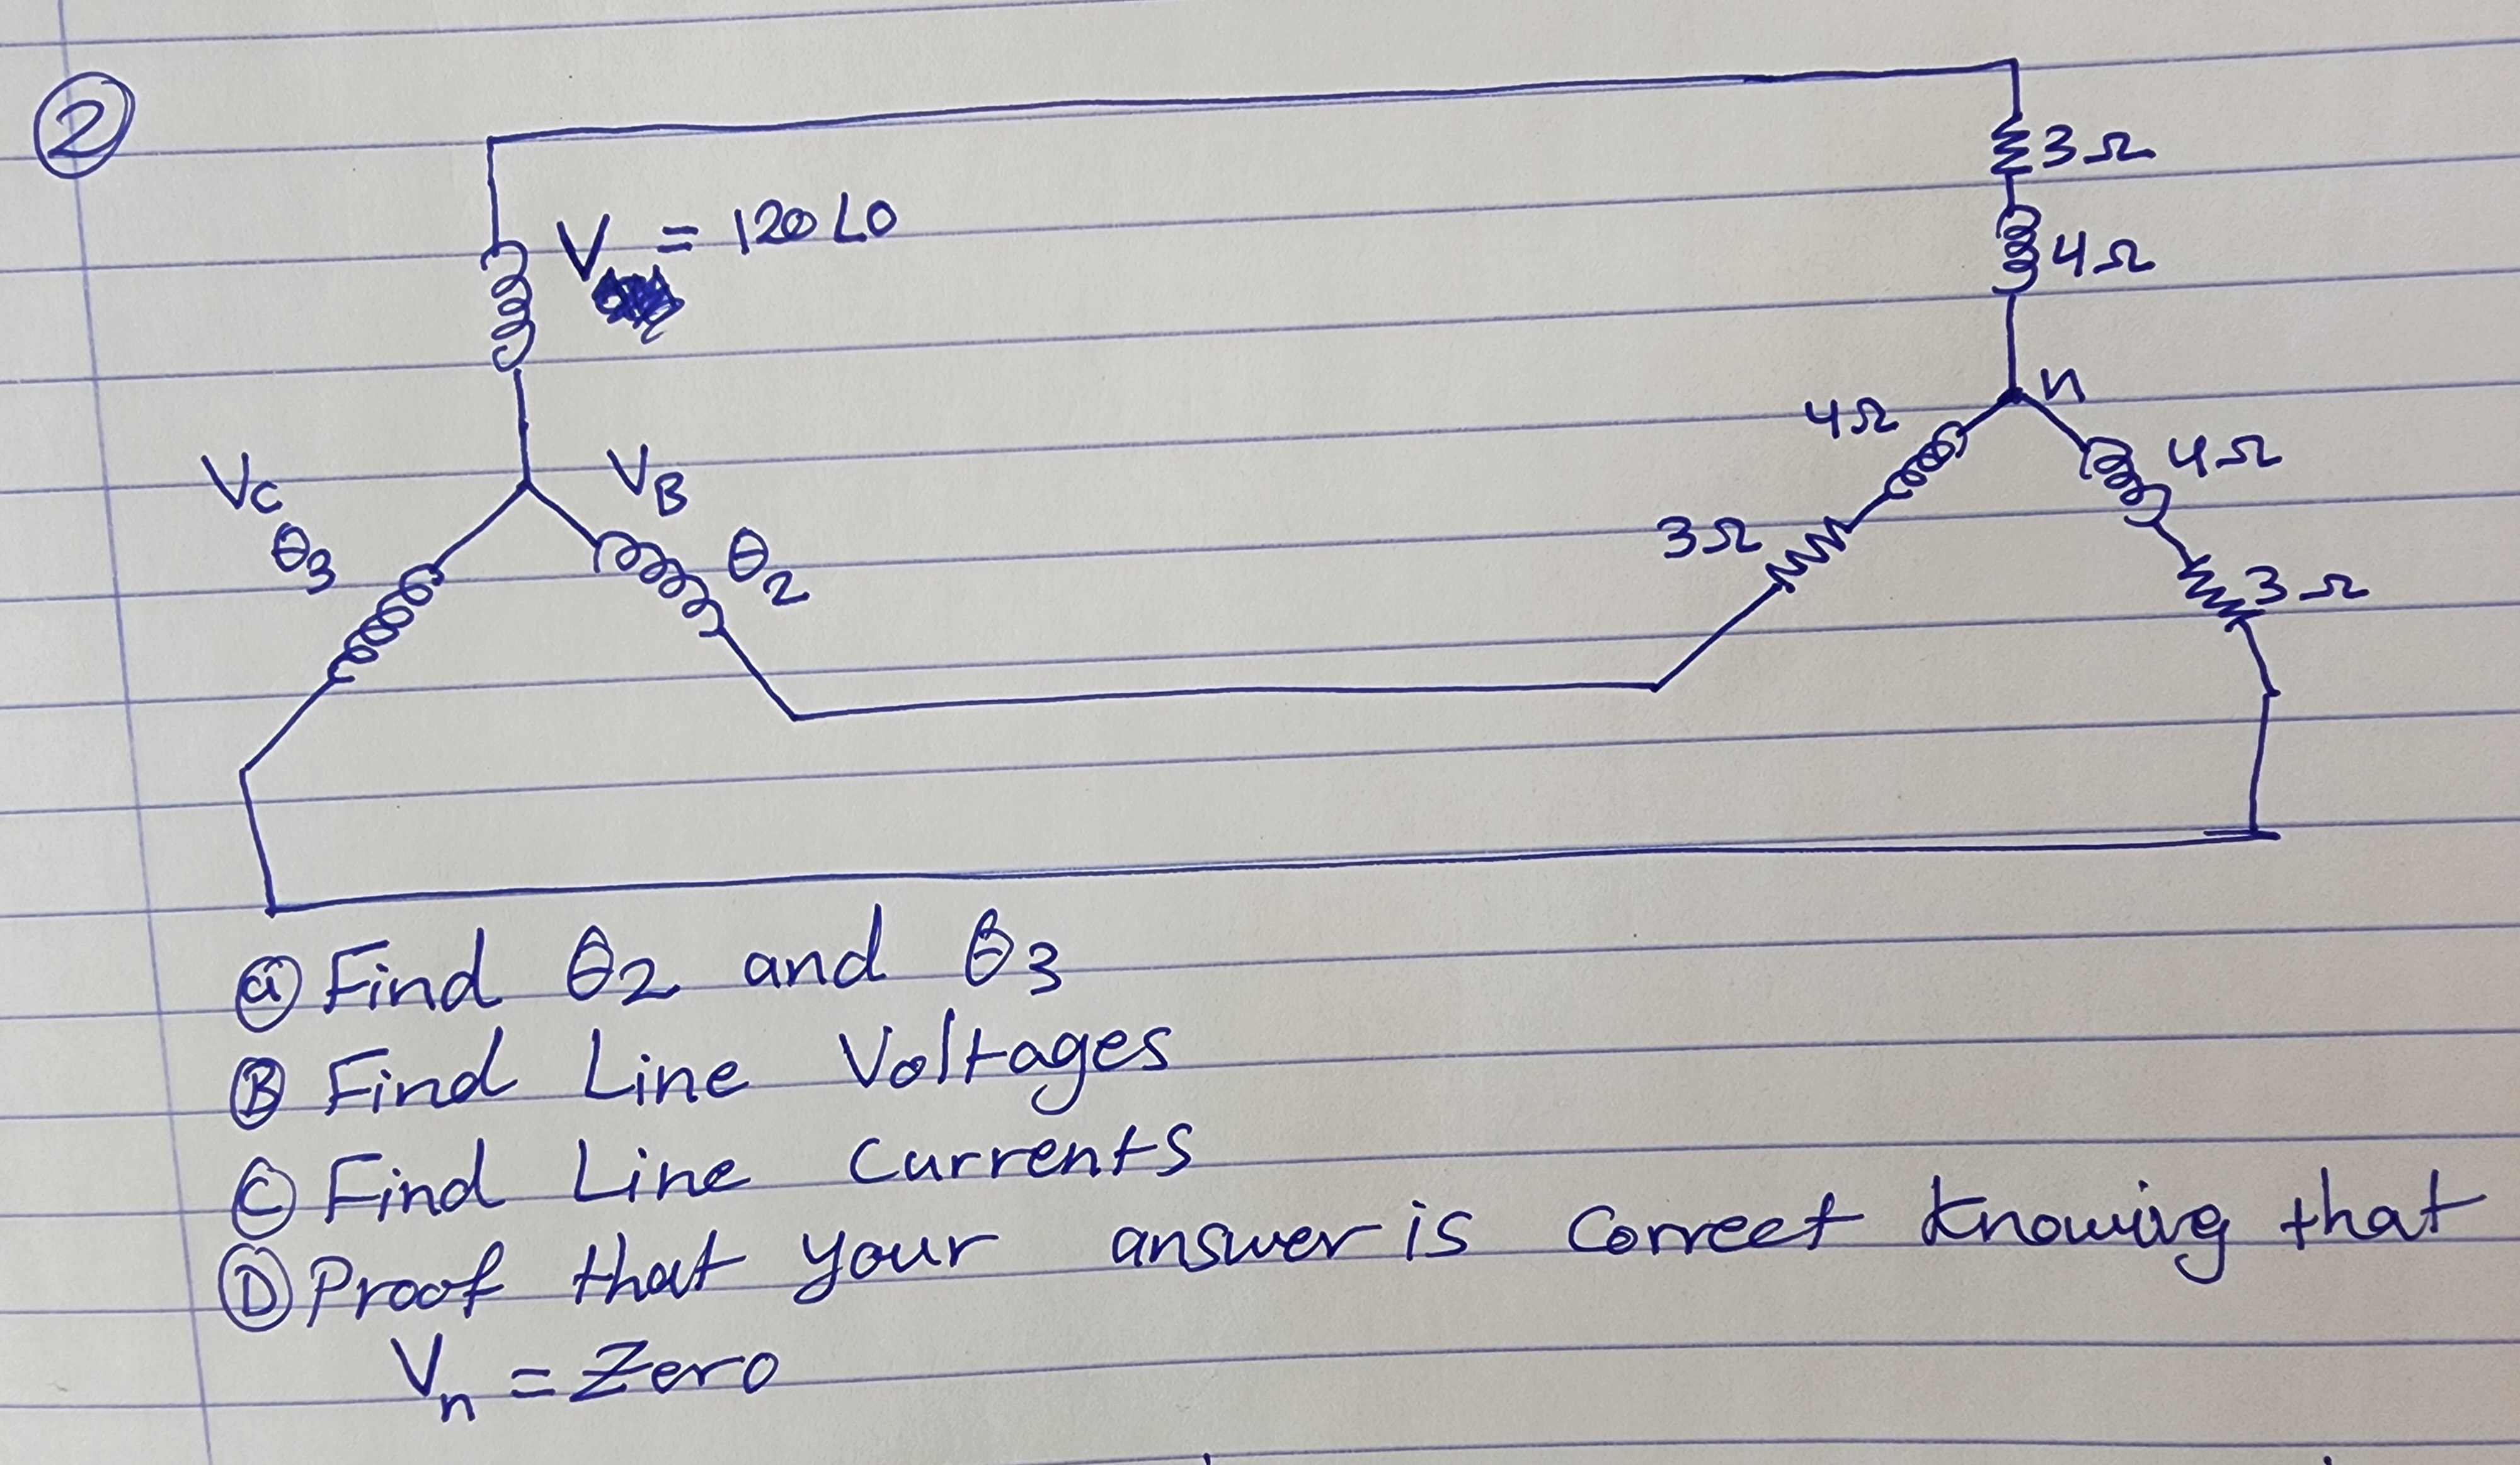 ②
3Ω
V = 120∠0
4Ω
n
4Ω
4Ω
VC
VB
3Ω
θ3
θ2
3Ω
ⓐ Find θ2 and θ3
Ⓑ Find Line Voltages
Ⓒ Find Line Currents
Ⓓ Proof that your answer is correct knowing that
Vn = Zero